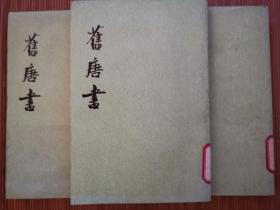 舊唐書
舊唐書